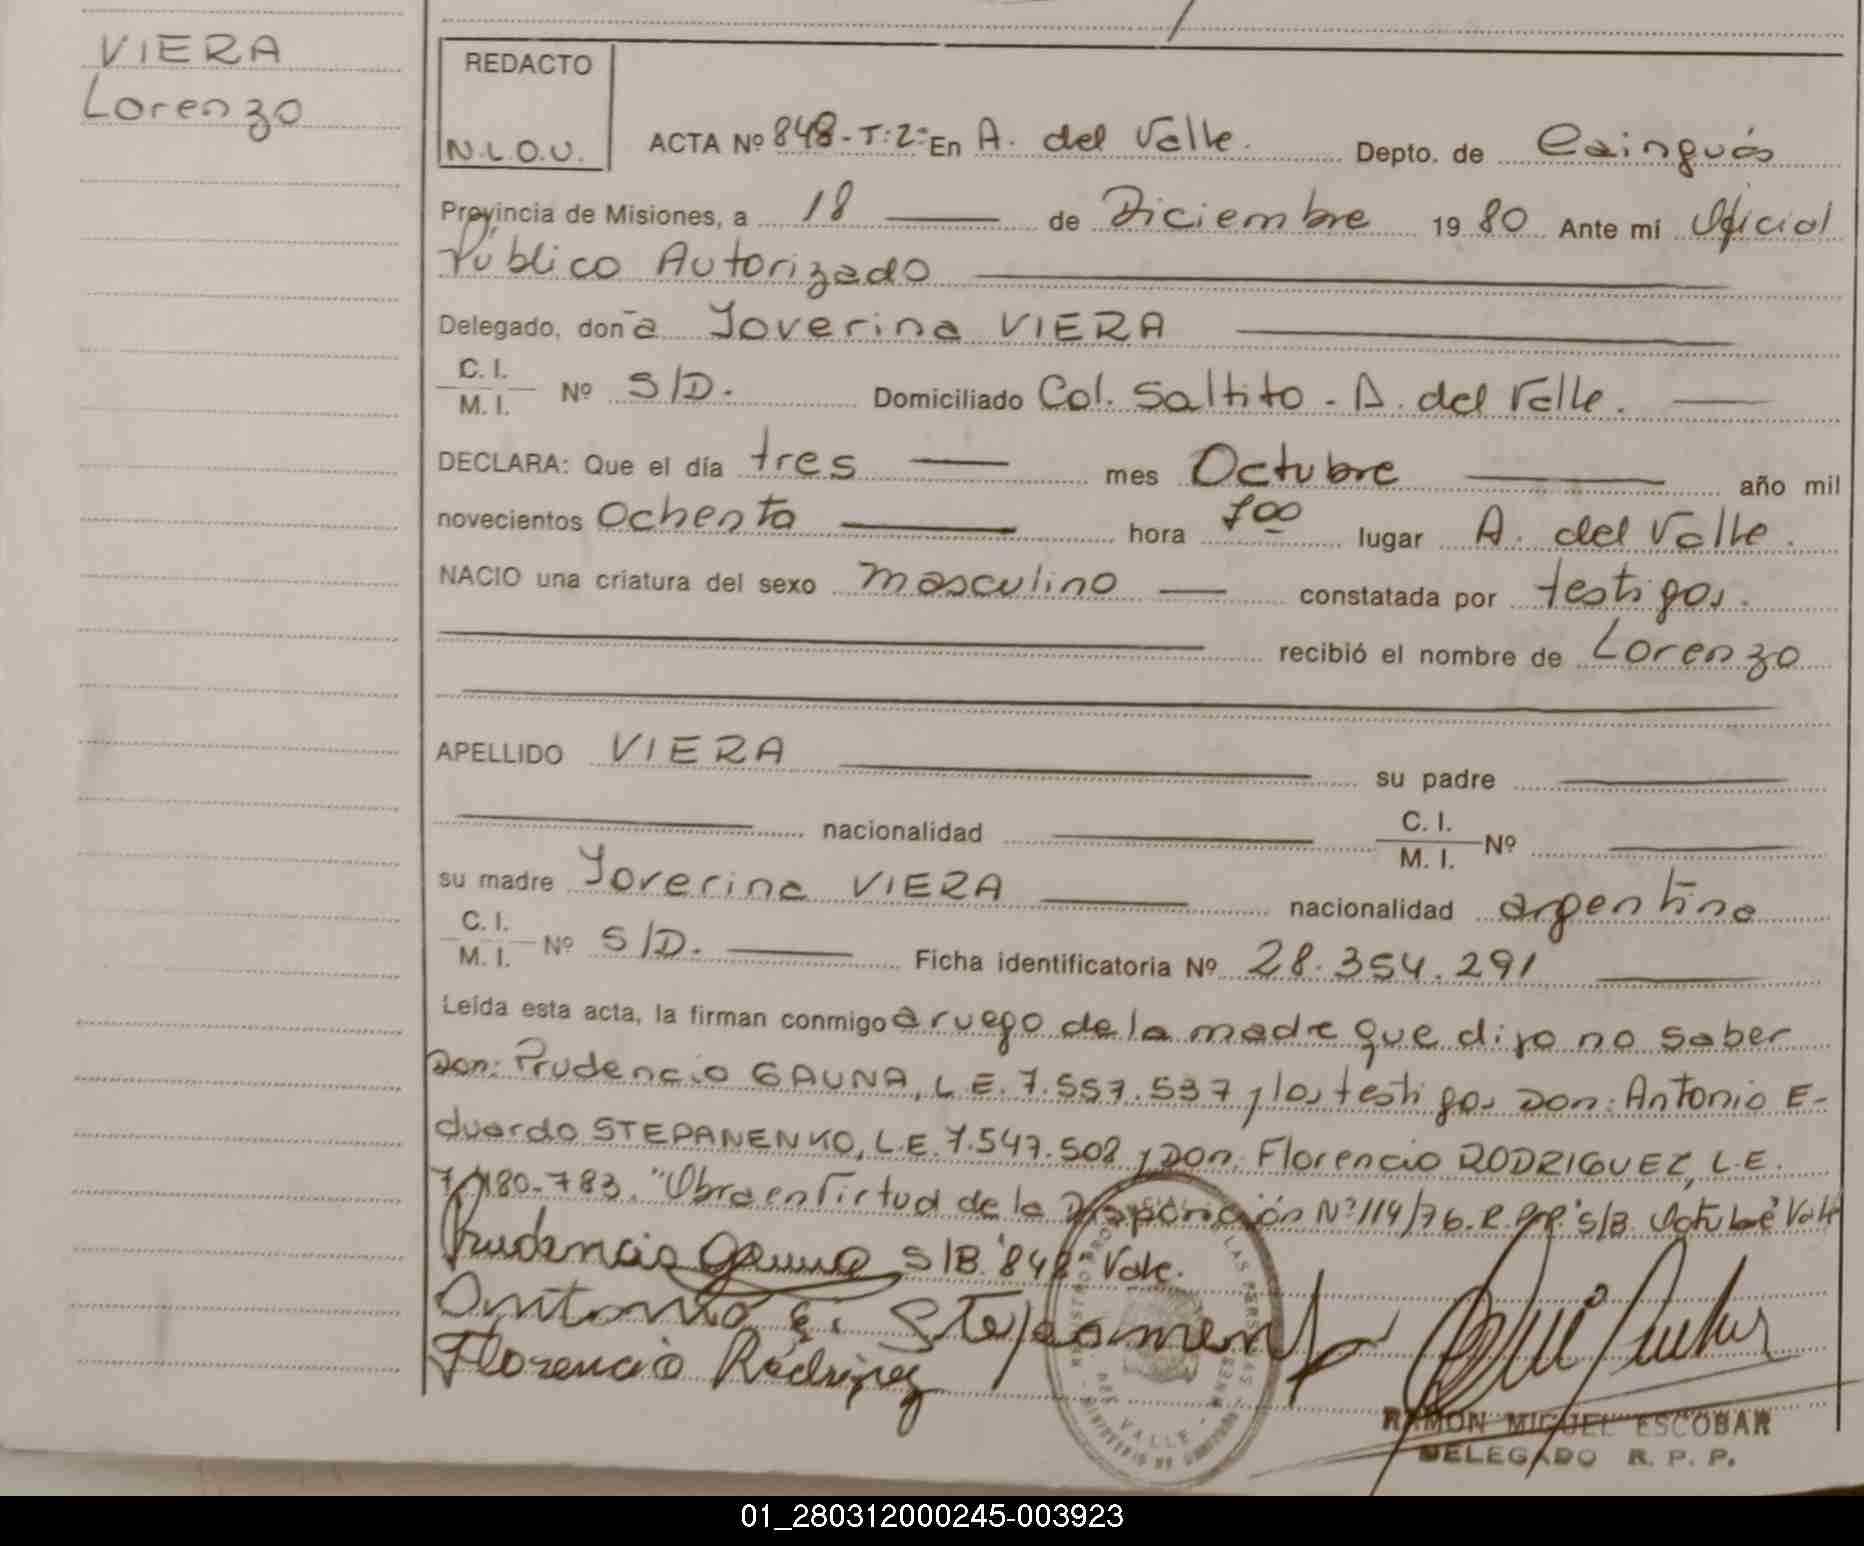 VIERA
Lorenzo
REDACTO
N.L.O.U.
ACTA Nº 848-T:2º En A. del Valle. Depto. de Cainguás
Provincia de Misiones, a 18 de Diciembre 1980 Ante mi Oficial
Público Autorizado
Delegado, doña Joverina VIERA
C. I.
M. I. Nº S/D. Domiciliado Col. Saltito - A. del Valle.
DECLARA: Que el día tres mes Octubre año mil
novecientos Ochenta hora 700 lugar A. del Valle.
NACIO una criatura del sexo masculino constatada por testigos.
recibió el nombre de Lorenzo
APELLIDO VIERA su padre
nacionalidad C. I.
M. I. Nº
su madre Joverina VIERA nacionalidad argentina
C. I.
M. I. Nº S/D. Ficha identificatoria Nº 28.354.291
Leída esta acta, la firman conmigo a ruego de la madre que dijo no saber
Don: Prudencio GAUNA, L.E. 7.557.537 y los testigos Don: Antonio E-
duardo STEPANENKO, L.E. 7.547.508 y Don: Florencio RODRIGUEZ, L.E.
7.180.783. "Obra en Virtud de la Disposición Nº 114/76. R.P.P." S/B. Octubre" Vale
Prudencio Gauna S/B. "848" Vale.
Antonio E. Stepanenko
Florencio Rodriguez
RAMON MIGUEL ESCOBAR
DELEGADO R. P. P.
01_280312000245-003923